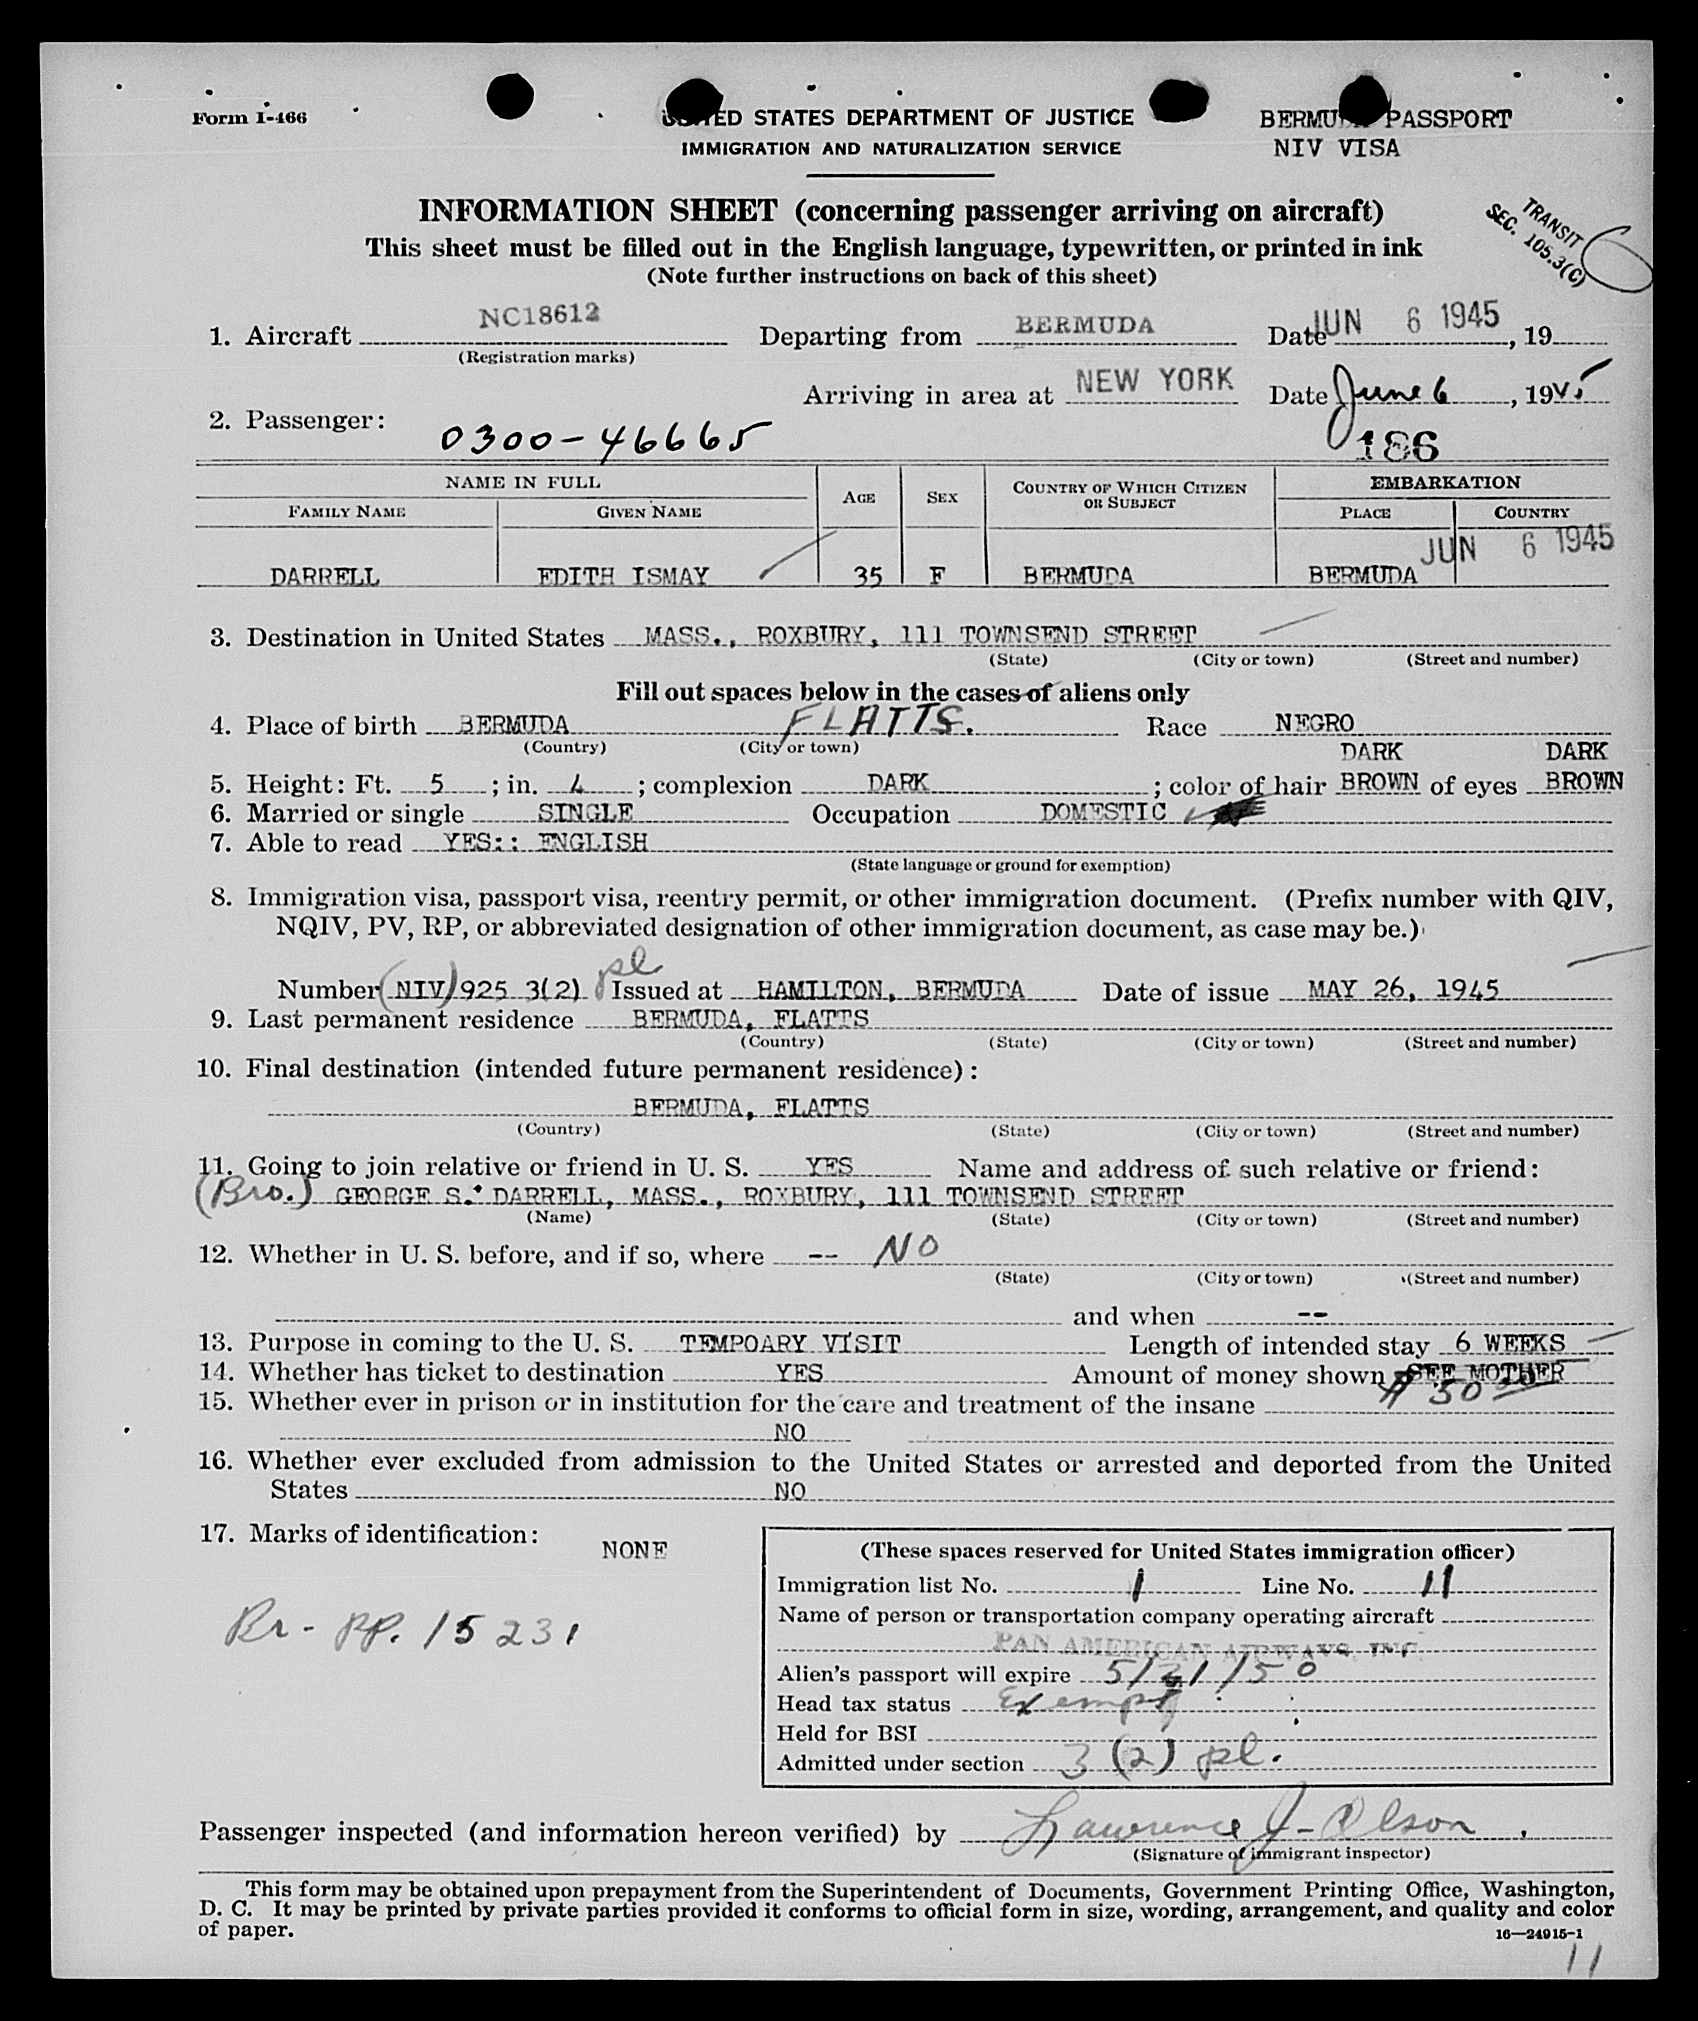 Form I-466
UNITED STATES DEPARTMENT OF JUSTICE
IMMIGRATION AND NATURALIZATION SERVICE
BERMUDA PASSPORT
NIV VISA
INFORMATION SHEET (concerning passenger arriving on aircraft)
This sheet must be filled out in the English language, typewritten, or printed in ink
(Note further instructions on back of this sheet)
TRANSIT
SEC. 105.3(C)
1. Aircraft NC18612 Departing from BERMUDA Date JUN 6 1945, 19
(Registration marks)
Arriving in area at NEW YORK Date June 6, 1945
2. Passenger: 0300-46665
186
NAME IN FULL AGE SEX COUNTRY OF WHICH CITIZEN OR SUBJECT EMBARKATION
FAMILY NAME GIVEN NAME PLACE COUNTRY
JUN 6 1945
DARRELL EDITH ISMAY 35 F BERMUDA BERMUDA
3. Destination in United States MASS., ROXBURY, 111 TOWNSEND STREET
(State) (City or town) (Street and number)
Fill out spaces below in the cases of aliens only
4. Place of birth BERMUDA FLATTS. Race NEGRO
(Country) (City or town)
DARK DARK
5. Height: Ft. 5; in. 4; complexion DARK; color of hair BROWN of eyes BROWN
6. Married or single SINGLE Occupation DOMESTIC
7. Able to read YES:: ENGLISH
(State language or ground for exemption)
8. Immigration visa, passport visa, reentry permit, or other immigration document. (Prefix number with QIV,
NQIV, PV, RP, or abbreviated designation of other immigration document, as case may be.)
Number (NIV) 925 3(2) pl Issued at HAMILTON, BERMUDA Date of issue MAY 26, 1945
9. Last permanent residence BERMUDA, FLATTS
(Country) (State) (City or town) (Street and number)
10. Final destination (intended future permanent residence):
BERMUDA, FLATTS
(Country) (State) (City or town) (Street and number)
11. Going to join relative or friend in U. S. YES Name and address of such relative or friend:
(Bro.) GEORGE S. DARRELL, MASS., ROXBURY, 111 TOWNSEND STREET
(Name) (State) (City or town) (Street and number)
12. Whether in U. S. before, and if so, where -- NO
(State) (City or town) (Street and number)
and when --
13. Purpose in coming to the U. S. TEMPOARY VISIT Length of intended stay 6 WEEKS
14. Whether has ticket to destination YES Amount of money shown SEE MOTHER
$ 50 00
15. Whether ever in prison or in institution for the care and treatment of the insane
NO
16. Whether ever excluded from admission to the United States or arrested and deported from the United
States NO
17. Marks of identification: NONE
Br - pp. 15231
(These spaces reserved for United States immigration officer)
Immigration list No. 1 Line No. 11
Name of person or transportation company operating aircraft
PAN AMERICAN AIRWAYS, INC.
Alien's passport will expire 5/31/50
Head tax status Exempt
Held for BSI
Admitted under section 3 (2) pl.
Passenger inspected (and information hereon verified) by Lawrence J. Olson
(Signature of immigrant inspector)
This form may be obtained upon prepayment from the Superintendent of Documents, Government Printing Office, Washington,
D. C. It may be printed by private parties provided it conforms to official form in size, wording, arrangement, and quality and color
of paper.
16—24915-1
11